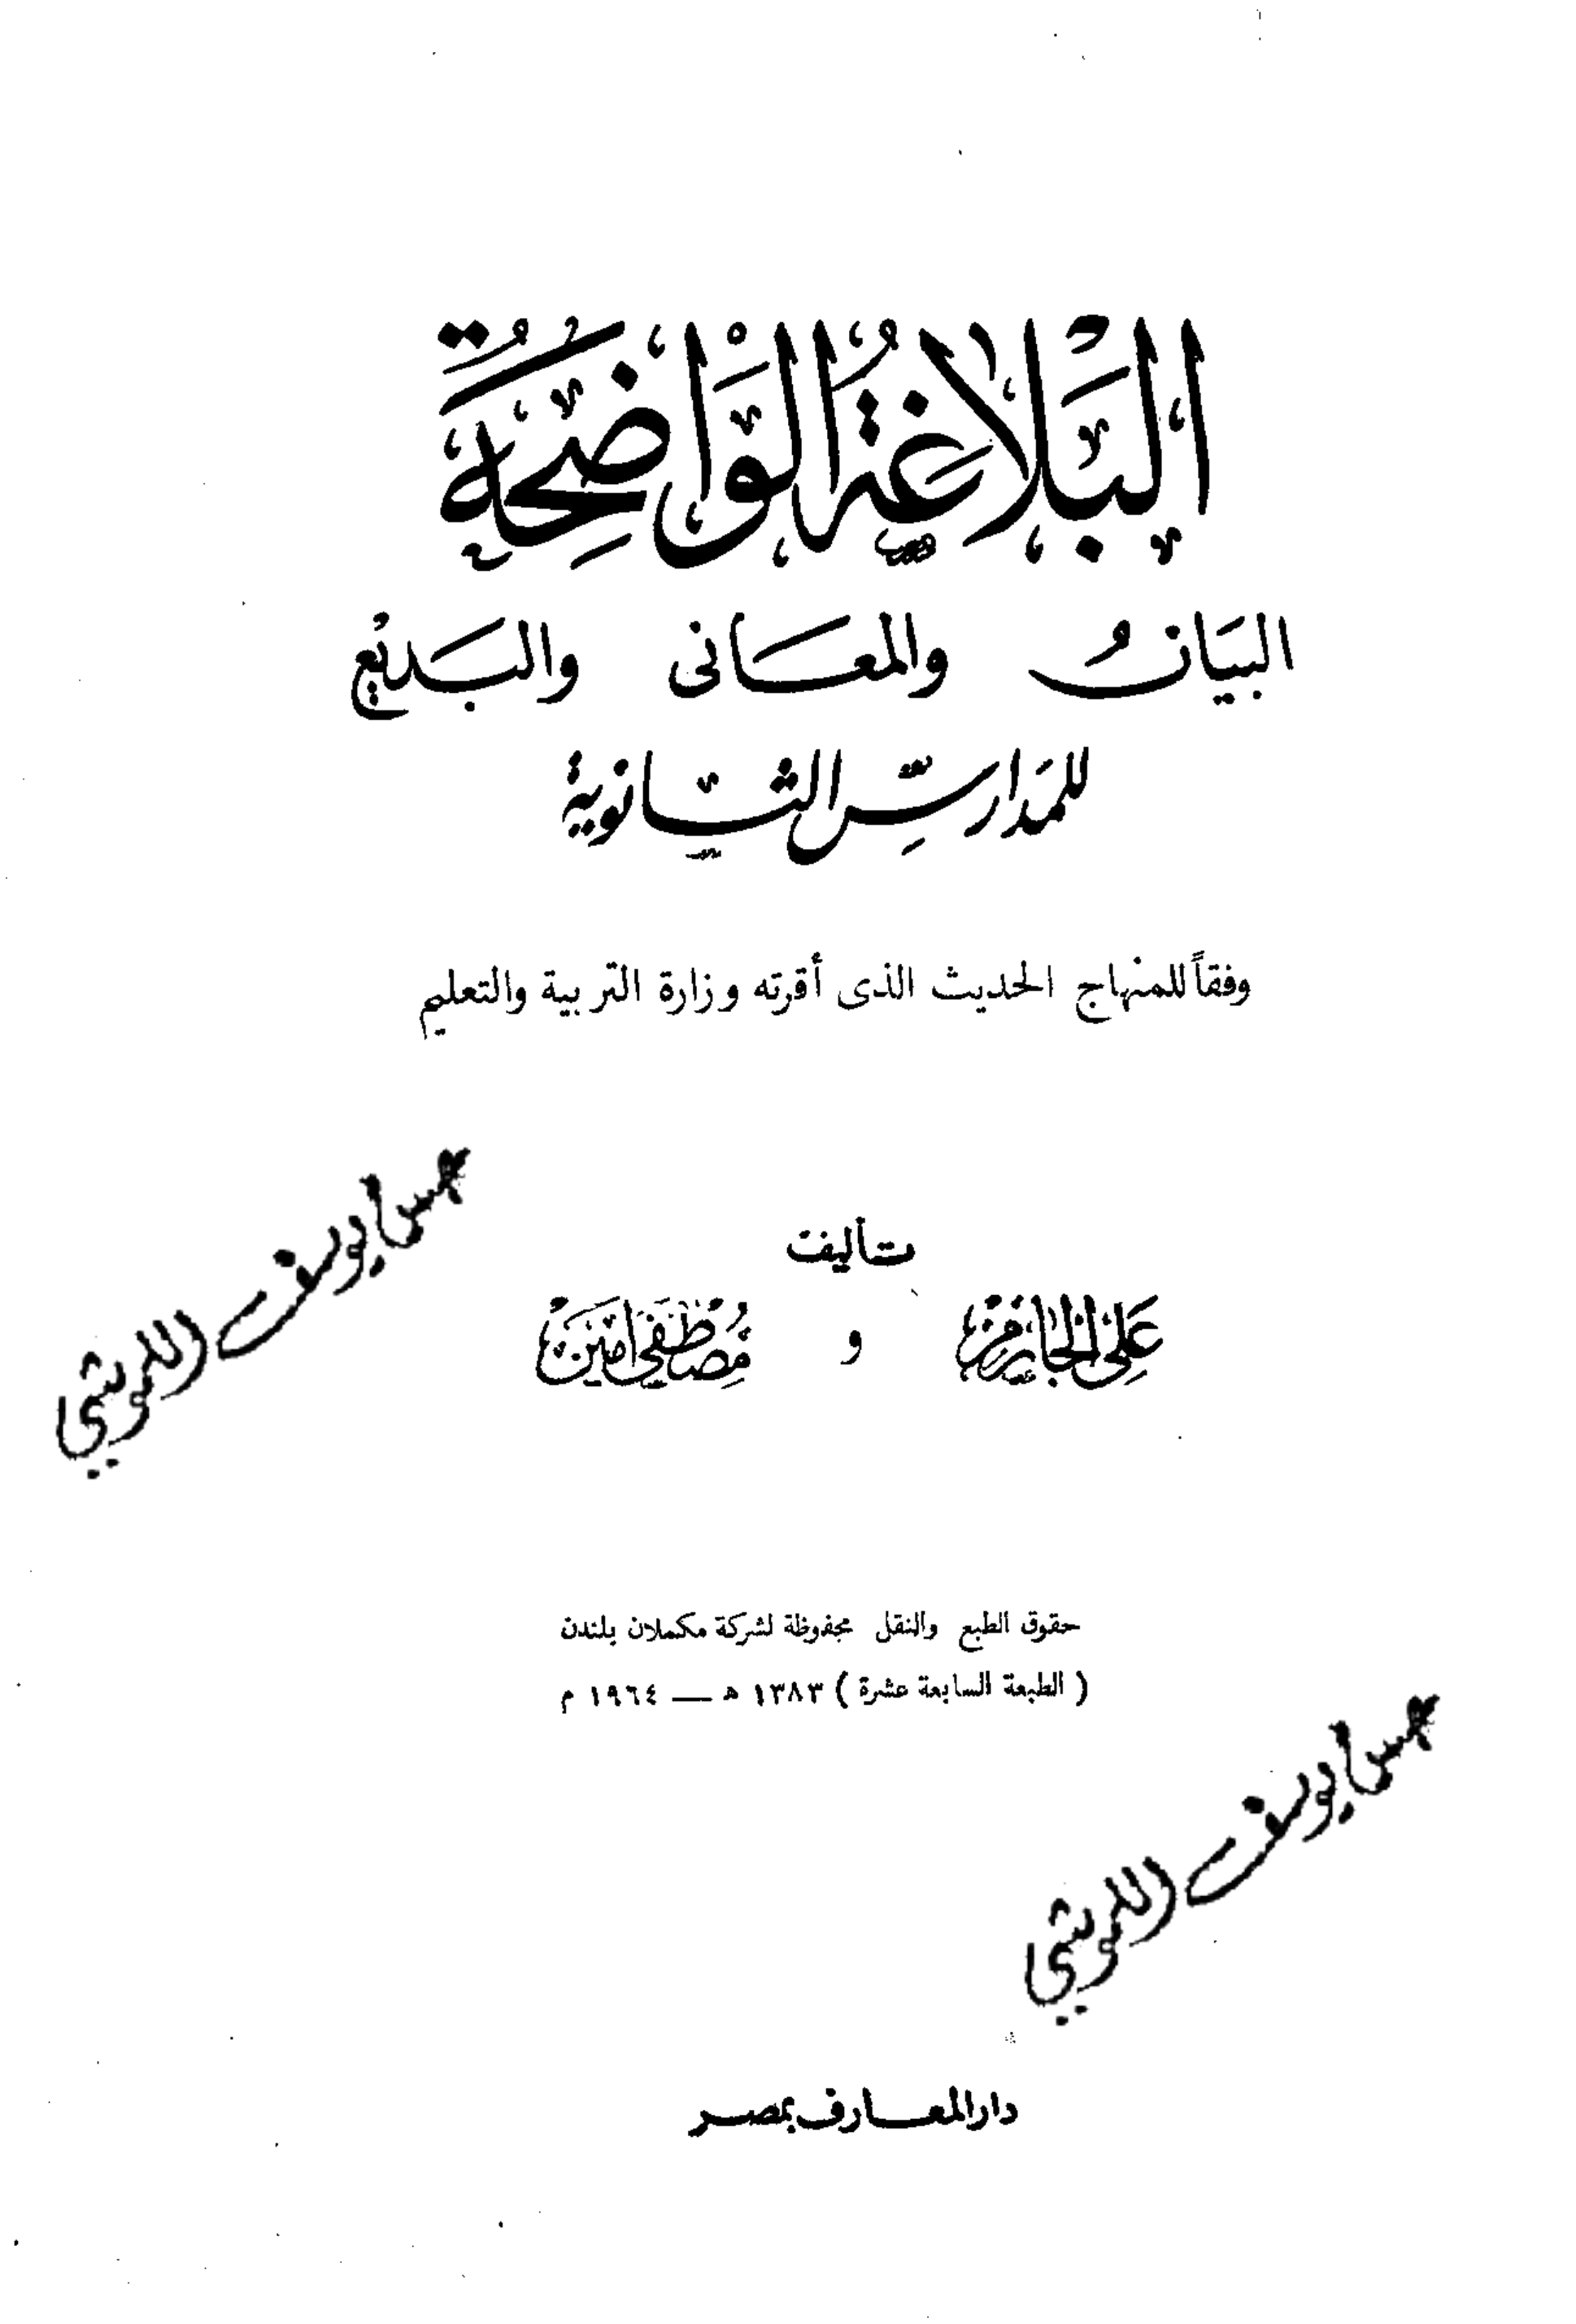 البَلاغَةُ الوَاضِحَةُ
البَيَانُ والمعَانى والبَديْع
للمَدارسِ الثانوية
وفقاً للمنهاج الحديث الذى أقرته وزارة التربية والتعليم
تأليف
عَلِى الجَارِم و مُصْطَفَى أمين
حقوق الطبع والنقل محفوظة لشركة مكملان بلندن
( الطبعة السابعة عشرة ) ١٣٨٣ هـ — ١٩٦٤ م
دار المعارف بمصر